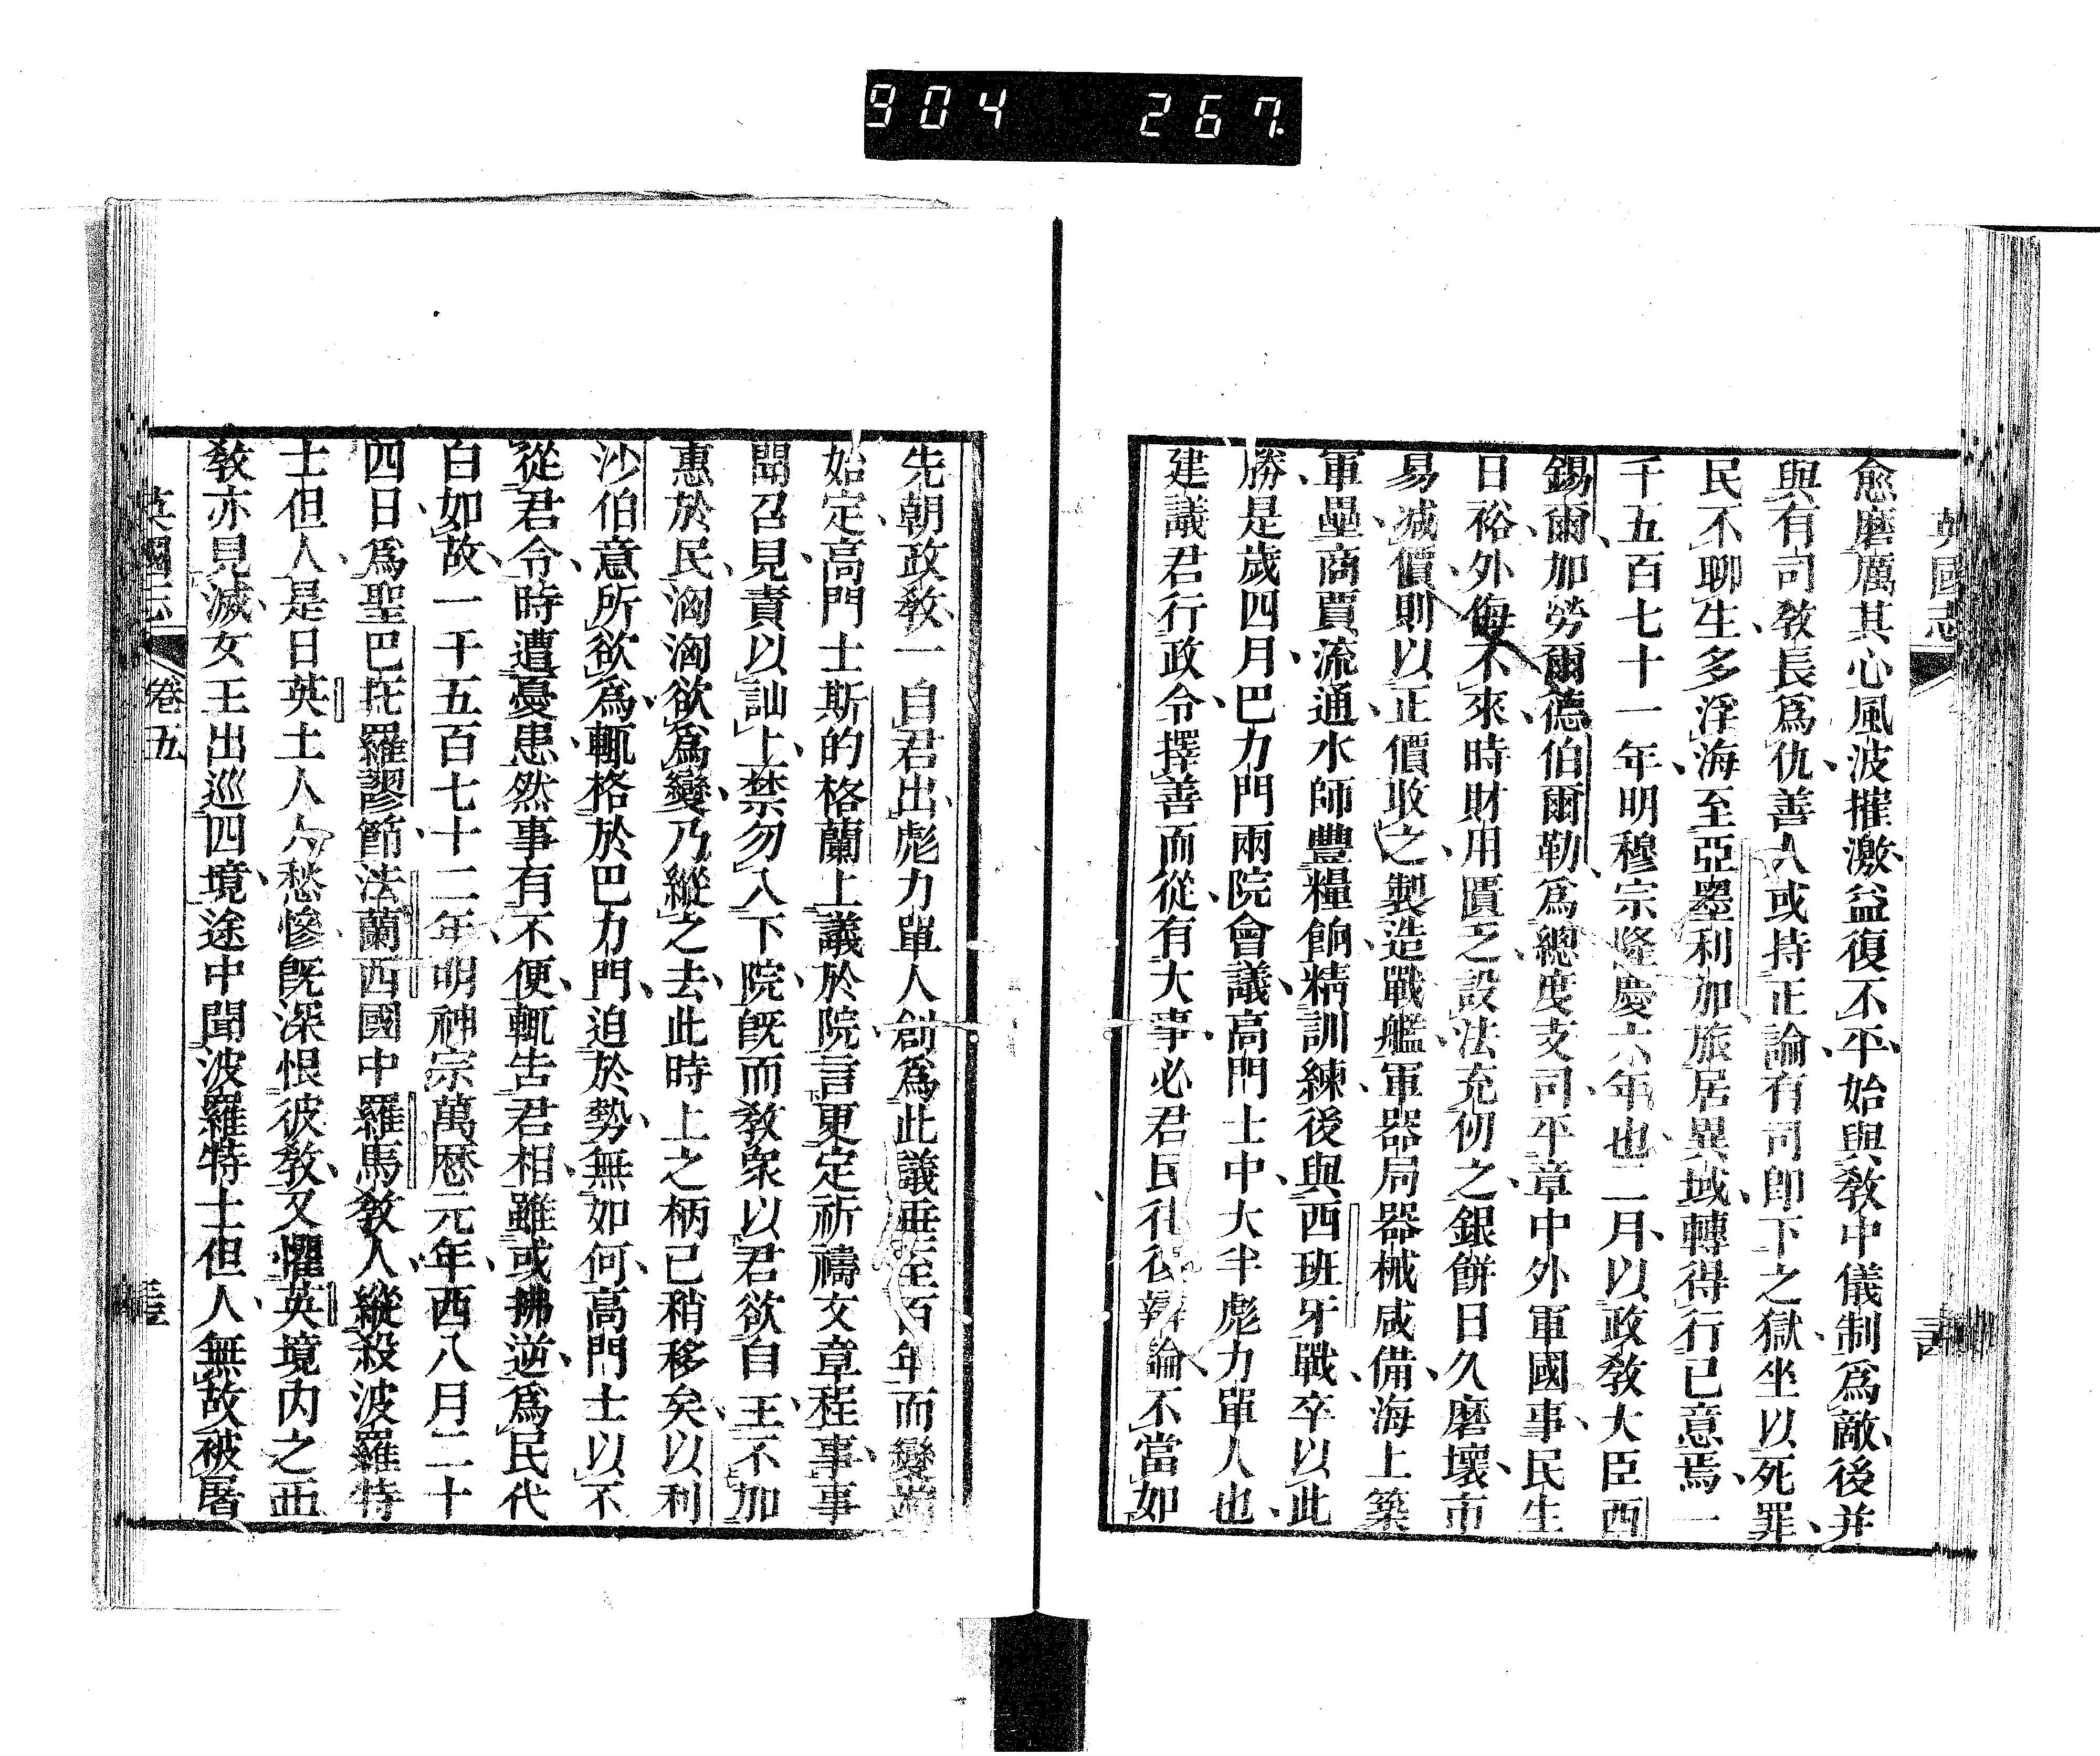 904 267
英國志
愈磨厲其心風波摧激益復不平始與敎中儀制爲敵後并
與有司敎長爲仇善人或持正論有司卽下之獄坐以死罪
民不聊生多浮海至亞墨利加旅居異域轉得行已意焉一
千五百七十一年明穆宗隆慶六年也二月以政敎大臣西
錫爾加勞爾德伯爾勒爲總度支司平章中外軍國事民生
日裕外侮不來時財用匱乏設法充仞之銀餅日久磨壞市
易減價則以正價收之製造戰艦軍器局器械咸備海上築
軍壘商賈流通水師豐糧餉精訓練後與西班牙戰卒以此
勝是歲四月巴力門兩院會議高門士中大半彪力單人也
建議君行政令擇善而從有大事必君民 辯論不當如
先朝政敎一自君出彪力單人創爲此議垂至百年而變端
始定高門士斯的格蘭上議於院言更定祈禱文章程事事
聞召見責以訕上禁勿入下院旣而敎衆以君欲自王不加
惠於民洶洶欲爲變乃縱之去此時上之柄已稍移矣以利
沙伯意所欲爲輒格於巴力門迫於勢無如何高門士以不
從君令時遭憂患然事有不便輒告君相雖或拂逆爲民代
白如故一千五百七十二年明神宗萬曆元年西八月二十
四日爲聖巴托羅謬節法蘭西國中羅馬敎人縱殺波羅特
士但人是日英土人人愁慘旣深恨彼敎又懼英境內之西
敎亦見滅女王出巡四境途中聞波羅特士但人無故被屠
英國志 卷五